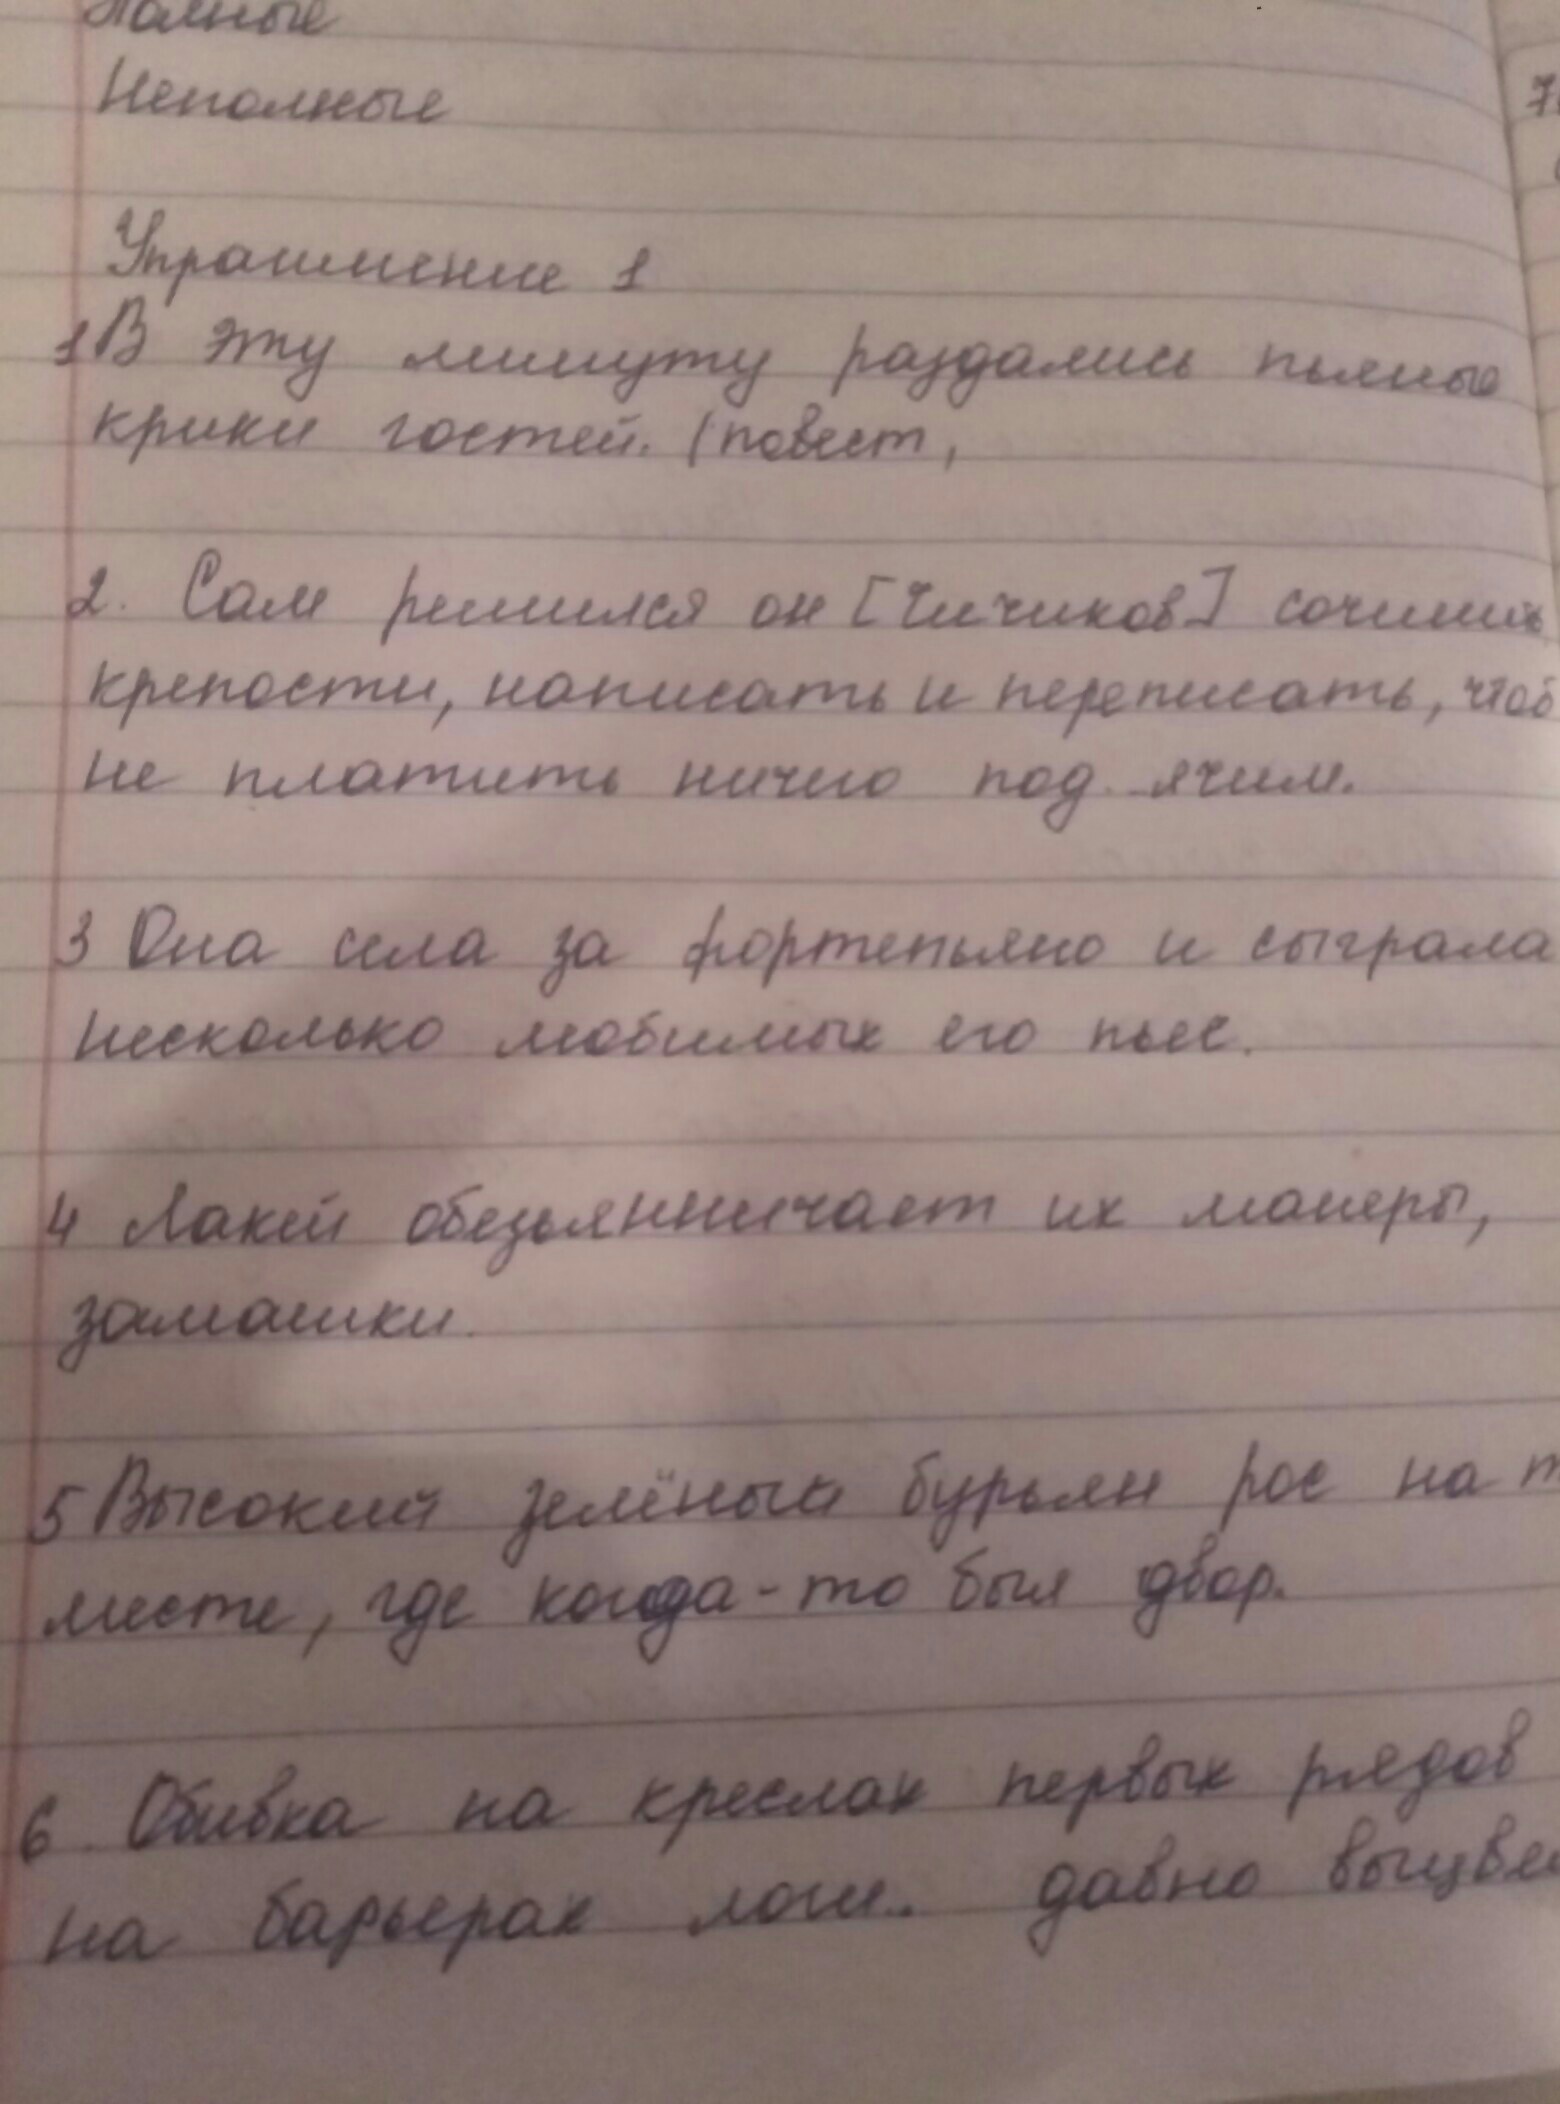 Полные
Неполные
Упражнение 1
1 В эту минуту раздались пьяные
крики гостей. (повест,
2. Сам решился он [Чичиков] сочинить
крепости, написать и переписать, чтоб
не платить ничего под ячим.
3 Она села за фортепьяно и сыграла
несколько любимых его пьес.
4 Лакей обезьянничает их манеры,
замашки.
5 Высокий зелёный бурьян рос на т
месте, где когда-то был двор.
6. Обивка на креслах первых рядов
на барьерах лож. давно выцвел